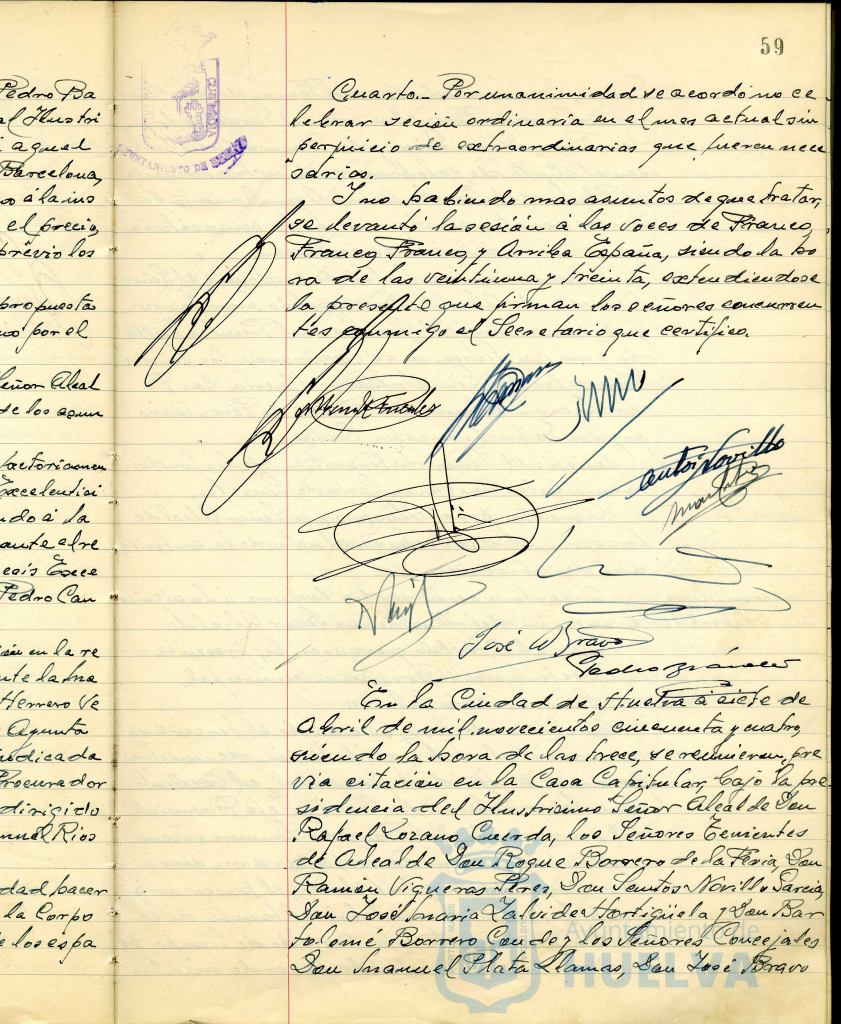 59
Pedro Ba
al Ilustri
aquel
Barcelona,
so á la ins
el precio,
prévio los
propuesta
por el
Señor Alcal
se los asun
Excelentísi
ndo á la
ante el re
Pedro Can
en la re
Herrero Ve
Agunta
ndicada
Procurador
dirigido
nuel Rios
dad hacer
la Corpo
de los espa
AYUNTAMIENTO DE
Cuarto.- Por unanimidad se acordó no ce
lebrar sesión ordinaria en el mes actual sin
perjuicio de extraordinarias que fueren nece
sarias.
Y no habiendo mas asuntos de que tratar,
se levantó la sesión á las voces de Franco,
Franco, Franco, y Arriba España, siendo la ho
ra de las veintiuna y treinta, extendiendose
la presente que firman los señores concurren
tes conmigo el Secretario que certifico.
Antonio Novillo
José W Bravo
Pedro
En la Ciudad de Huelva á siete de
Abril de mil novecientos cincuenta y cuatro,
siendo la hora de las trece, se reunieron, pre
via citación en la Casa Capitular, bajo la pre
sidencia del Ilustrisimo Señor Alcalde Don
Rafael Lozano Cuerda, los Señores Tenientes
de Alcalde Don Roque Borrero de la Feria, Don
Ramón Vigueras Pérez, Don Santos Novillo Garcia,
Don José Maria Zalvide Hortigüela y Don Bar
tolomé Borrero Conde y los Señores Concejales
Don Manuel Plata Llamas, Don José Bravo
Ayuntamiento de
HUELVA